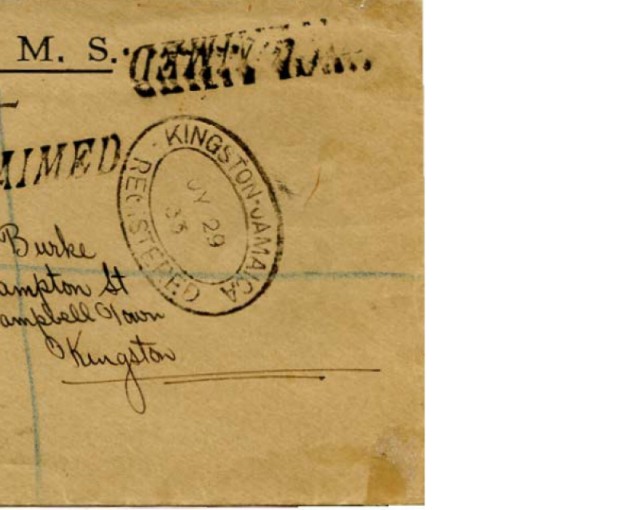 M. S.
AIMED
KINGSTON·JAMAICA
REGISTERED
JY 29
33
Burke
ampton St
ampbell Town
Kingston